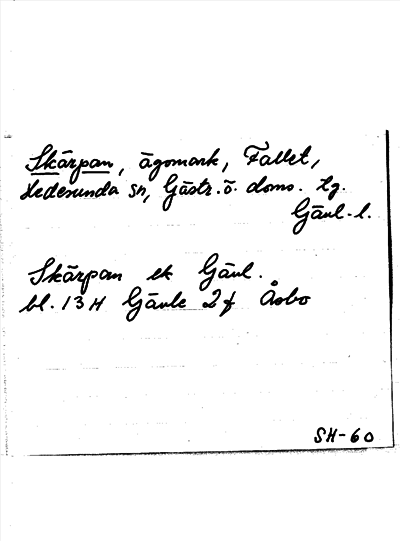 Skärpan, ägomark, Fallet,
Hedesunda sn, Gästr. ö. doms. tg.
Gävl. l.
Skärpan ek Gävl.
bl. 13 H Gävle 2 f Åsbo
SH-60